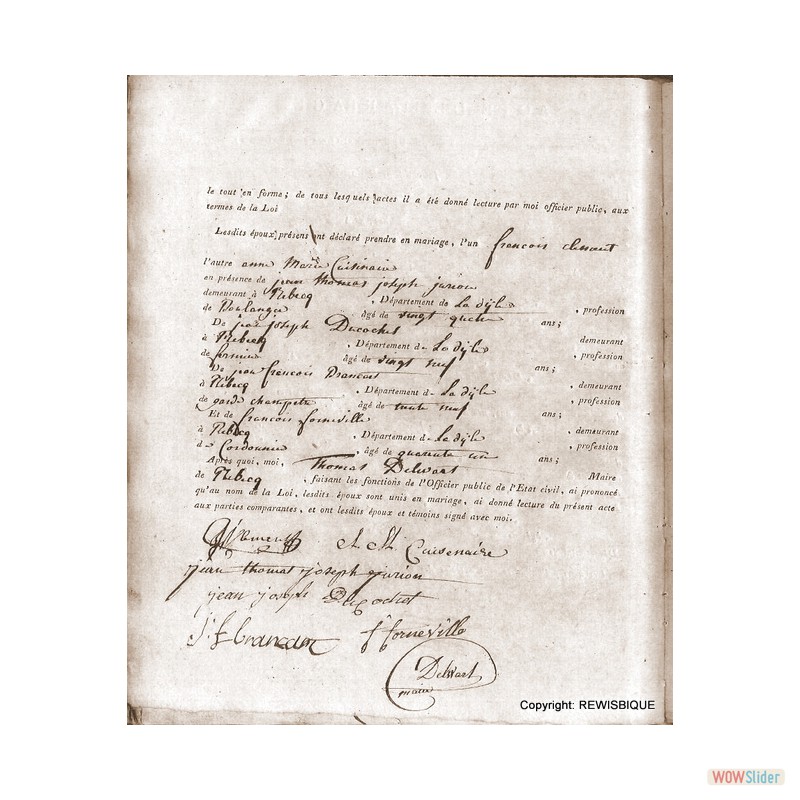 le tout en forme; de tous lesquels actes il a été donné lecture par moi officier public, aux
termes de la Loi
Lesdits époux présens ont déclaré prendre en mariage, l'un françois
l'autre anne Marie Cuisinaire
en présence de jean thomas joseph jurion
demeurant à Rebecq , Département de La dyle
de Boulanger âgé de vingt quatre ans; , profession
De jean joseph Ducochet
à Rebecq , Département de La dyle demeurant
de fermier âgé de vingt neuf ans; , profession
De jean françois Brancart
à Rebecq , Département de La dyle , demeurant
de garde champetre âgé de trente neuf ans; , profession
Et de françois forneville
à Rebecq , Département de La dyle , demeurant
de Cordonnier âgé de quarante un ans; , profession
Après quoi, moi, Thomas Delwart Maire
de Rebecq , faisant les fonctions de l'Officier public de l'Etat civil, ai prononcé
qu'au nom de la Loi, lesdits époux sont unis en mariage, ai donné lecture du présent acte
aux parties comparantes, et ont lesdits époux et témoins signé avec moi.
Cuisenaire
jean thomas joseph jurion
jean joseph Ducochet
j f brancart f forneville
Delwart
maire
Copyright: REWISBIQUE
WOWSlider